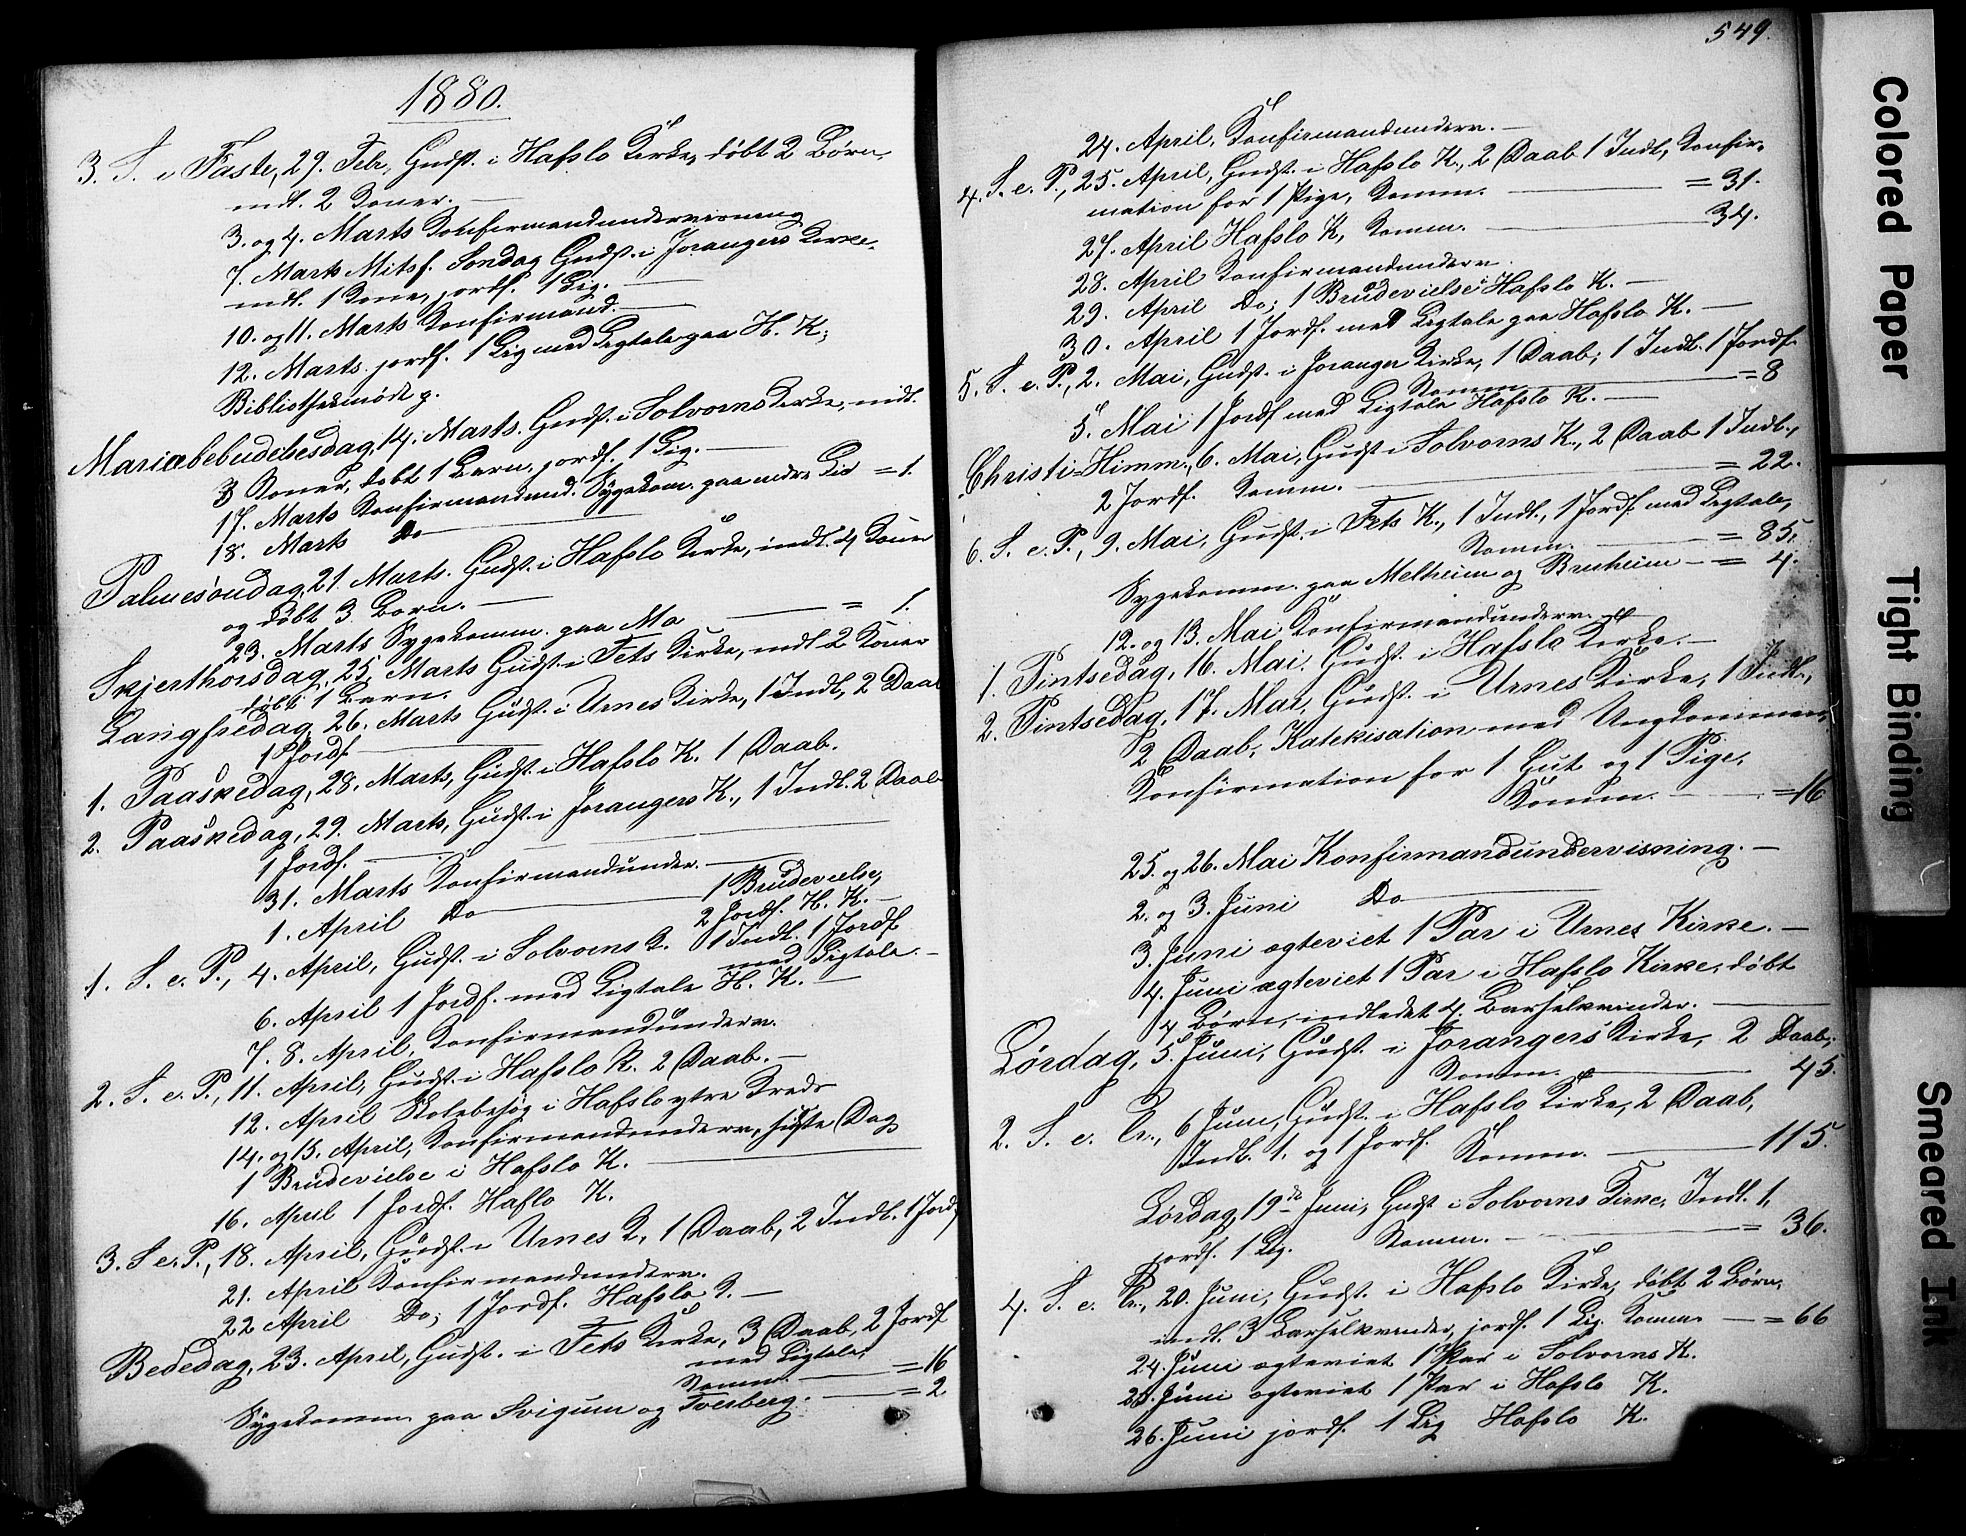 1880.
3. S. i Faste, 29. Febr, Gudst. i Hafslo Kirke, døbt 2 Børn,
indl. 2 Koner.
3. og 4. Marts Konfirmandundervisning
7. Marts Mitsf. Søndag Gudst. i Joranger Kirke.
indl. 1 Kone, jordf. 1 Lig.
10. og 11. Marts Konfirmand.
12. Marts. jordf. 1 Lig med Ligtale paa H. K.
Bibliotheksmøde
Mariæbebudelsesdag, 14. Marts. Gudst. i Solvorns Kirke, indl.
3 Koner, døbt 1 Barn, jordf. 1 Lig.
17. Marts Konfirmandund. Sygekom. paa = 1.
18. Marts Do
Palmesøndag, 21. Marts. Gudst. i Hafslo Kirke, indl. 4 Koner
og døbt 3 Børn.
23. Marts Sygekomm. paa Mo = 1.
Skjerthorsdag, 25. Marts Gudst. i Fets Kirke, indl. 2 Koner
døbt 1 Barn.
Langfredag, 26. Marts Gudst. i Urnes Kirke, 1 Indl, 2 Daab
1 Jordf
1. Paaskedag, 28. Marts, Gudst. i Hafslo K. 1 Daab.
2. Paaskedag, 29. Marts, Gudst. i Jorangers K., 1 Indl. 2 Daab
1 Jordf.
31. Marts Konfirmandunder.
1. April Do 1 Brudevielse,
2 Jordf. H. K.
1. S. e. P., 4. April, Gudst. i Solvorns K. 1 Indl. 1 Jordf
med Ligtale.
6. April 1 Jordf. med Ligtale H. K.
7. 8. April, Konfirmandunderv.
2. S. e. P., 11. April, Gudst. i Hafslo K. 2 Daab.
12. April Skolebesøg i Hafslo ytre Kreds
14. og 15. April, Konfirmandunderv, sidste Dag
1 Brudevielse i Hafslo K.
16. April 1 Jordf. Haflo K.
3. S e. P., 18. April, Gudst. i Urnes K, 1 Daab, 2 Indl. 1 Jordf
21. April Konfirmandunderv.
22 April Do; 1 Jordf. Hafslo K.
Bededag, 23. April, Gudst. i Fets Kirke, 3 Daab, 2 Jordf
med Ligtale,
Komm. = 16
Sygekomm. paa Svigum og Tverberg. = 2
549.
24. April, Konfirmandunderv.
4. S. e. P., 25. April, Gudst. i Hafslo K., 2 Daab 1 Indl, Konfir-
mation for 1 Pige, Komm. = 31.
27. April Hafslo K, Komm. 34.
28. April Konfirmandunderv.
29. April Do; 1 Brudevielse Hafslo K.
30. April 1 Jordf. med Ligtale paa Hafslo K.
5. S. e. P., 2. Mai, Gudst. i Joranger Kirke, 1 Daab; 1 Indl. 1 Jordf.
Komm = 8
5. Mai 1 Jordf med Ligtale Hafslo K.
Christi-Himm., 6. Mai, Gudst i Solvorns K., 2 Daab 1 Indl.,
2 Jordf. Komm. = 22.
6. S. e. P., 9. Mai, Gudst. i Fets K., 1 Indl., 1 Jordf med Ligtale,
Komm. = 85.
Sygekomm. paa Melheim og Bruheim = 4.
12. og 13. Mai Konfirmandunderv.
1. Pintsedag, 16. Mai. Gudst. i Hafslo Kirke.
2. Pintsedag, 17. Mai, Gudst. i Urnes Kirke, 1 Indl.,
2 Daab, Katekisation med Ungdommen,
Konfirmation for 1 Gut og 1 Pige,
Komm. = 16
25. og 26. Mai Konfirmandundervisning.
2. og 3. Juni Do
3. Juni ægteviet 1 Par i Urnes Kirke.
4. Juni ægteviet 1 Par i Hafslo Kirke, døbt
4 Børn, indledet 4 Barselkvinder.
Lørdag, 5. Juni, Gudst. i Jorangers Kirke, 2 Daab,
Komm. 45.
2. S. e. Tr., 6 Juni, Gudst. i Hafslo Kirke, 2 Daab,
Indl. 1. og 1 Jordf. Komm. 115.
Lørdag, 19de Juni, Gudst i Solvorns Kirke, Indl. 1,
jordf. 1 Lig. Komm. = 36.
4. S. e. Tr., 20. Juni, Gudst. i Hafslo Kirke, døbt 2 Børn,
indl. 3 Barselkvinder, jordf. 1 Lig. Komm. = 66
24. Juni ægteviet 1 Par i Solvorns K.
25. Juni ægteviet 1 Par i Hafslo K.
26. Juni jordf. 1 Lig Hafslo K.
Colored Paper
Tight Binding
Smeared Ink